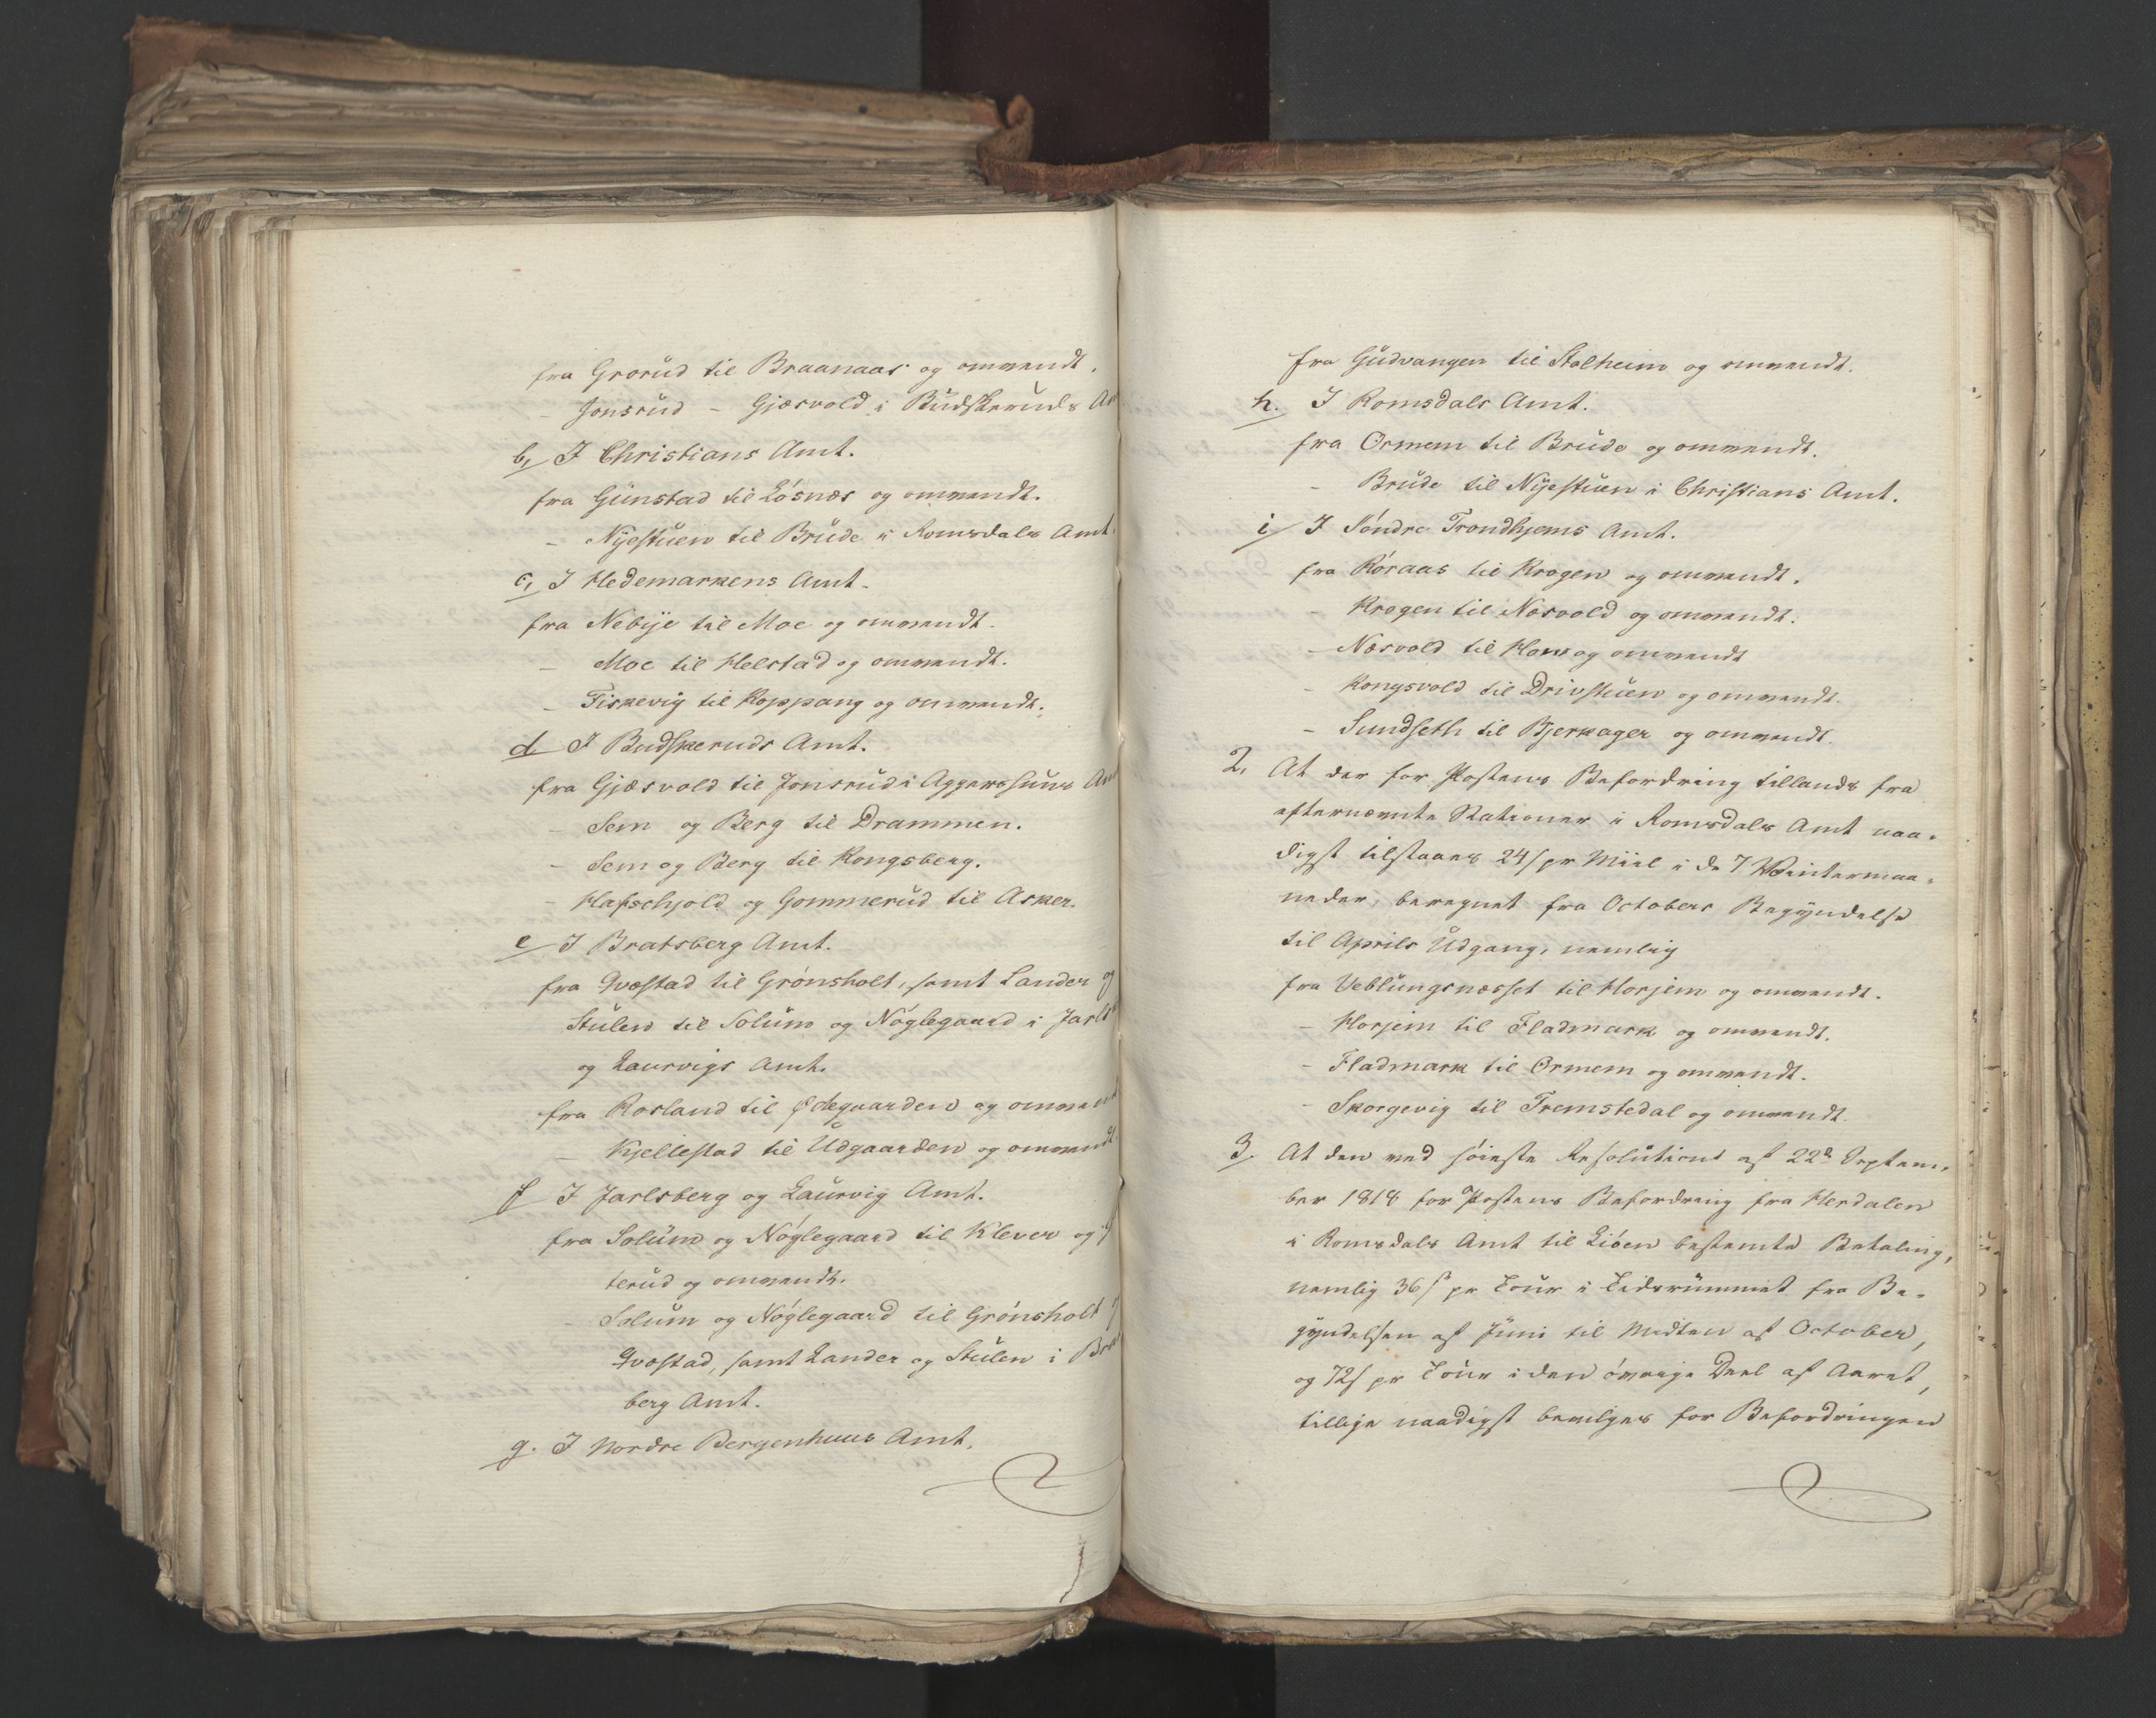 fra Grorud til Braanaas og omvendt.
- Jonsrud - Gjæsvold i Budskeruds
b, I Christians Amt.
fra Günstad til Lósnæs og omvendt.
- Nÿestuen til Brude i Romsdals Amt.
c, I Hedemarkens Amt.
fra Nebÿe til Moe og omvendt.
- Moe til Helstad og omvendt.
- Fiskevig til Koppang og omvendt.
d I Budskeruds Amt.
fra Gjæsvold til Jonsrud i Aggershuus
- Sem og Berg til Drammen.
- Sem og Berg til Kongsberg.
- Hafschjold og Gommerud til Asker.
e I Bratsberg Amt.
fra Qvæstad til Grónsholt, samt Landes og
Stulen til Solum og Nóglegaard i
og Laurvigs Amt.
fra Rosland til Ødegaarden og
- Kjellestad til Udgaarden og omvendt.
f I Jarlsberg og Laurvig Amt.
fra Solum og Nóglegaard til Klever og
terud og omvendt.
- Solum og Nóglegaard til Grónsholt
Qvæstad, samt Landes og Stulen i
berg Amt.
g. I Nordre Bergenhuus Amt.
fra Gudvangen til Stalheim og omvendt.
h. I Romsdals Amt.
fra Ormem til Brude og omvendt.
- Brude til Nÿestuen i Christians Amt.
i I Sóndre Trondhjems Amt.
fra Róraas til Krogen og omvendt.
- Krogen til Næsvold og omvendt.
- Næsvold til Hov og omvendt
- Kongsvold til Drivstuen og omvendt.
- Sundseth til Bjerkager og omvendt.
2, At der for Postens Befordring tillands fra
efternævnte Stationer i Romsdals Amt naa-
digst tilstaaes 24 s pr Miil i de 7 Vintermaa-
neder, beregnet fra Octobers Begÿndelse
til Aprils Udgang, nemlig
fra Veblungsnæsset til Horjem og omvendt.
- Horjem til Fladmark og omvendt.
- Fladmark til Ormem og omvendt.
- Skorgevig til Tremstedal og omvendt.
3. At den ved hóieste Resolution af 22d Septem-
ber 1818 for Postens Befordring fra Herdalen
i Romsdals Amt til Lióen bestemte Betaling,
nemlig 36 s pr Tour i Tidsrummet fra Be-
gÿndelsen af Juni til Midten af October,
og 72 s pr Tour i den óvrige Deel af Aaret,
tillige naadigst bevilges for Befordringen